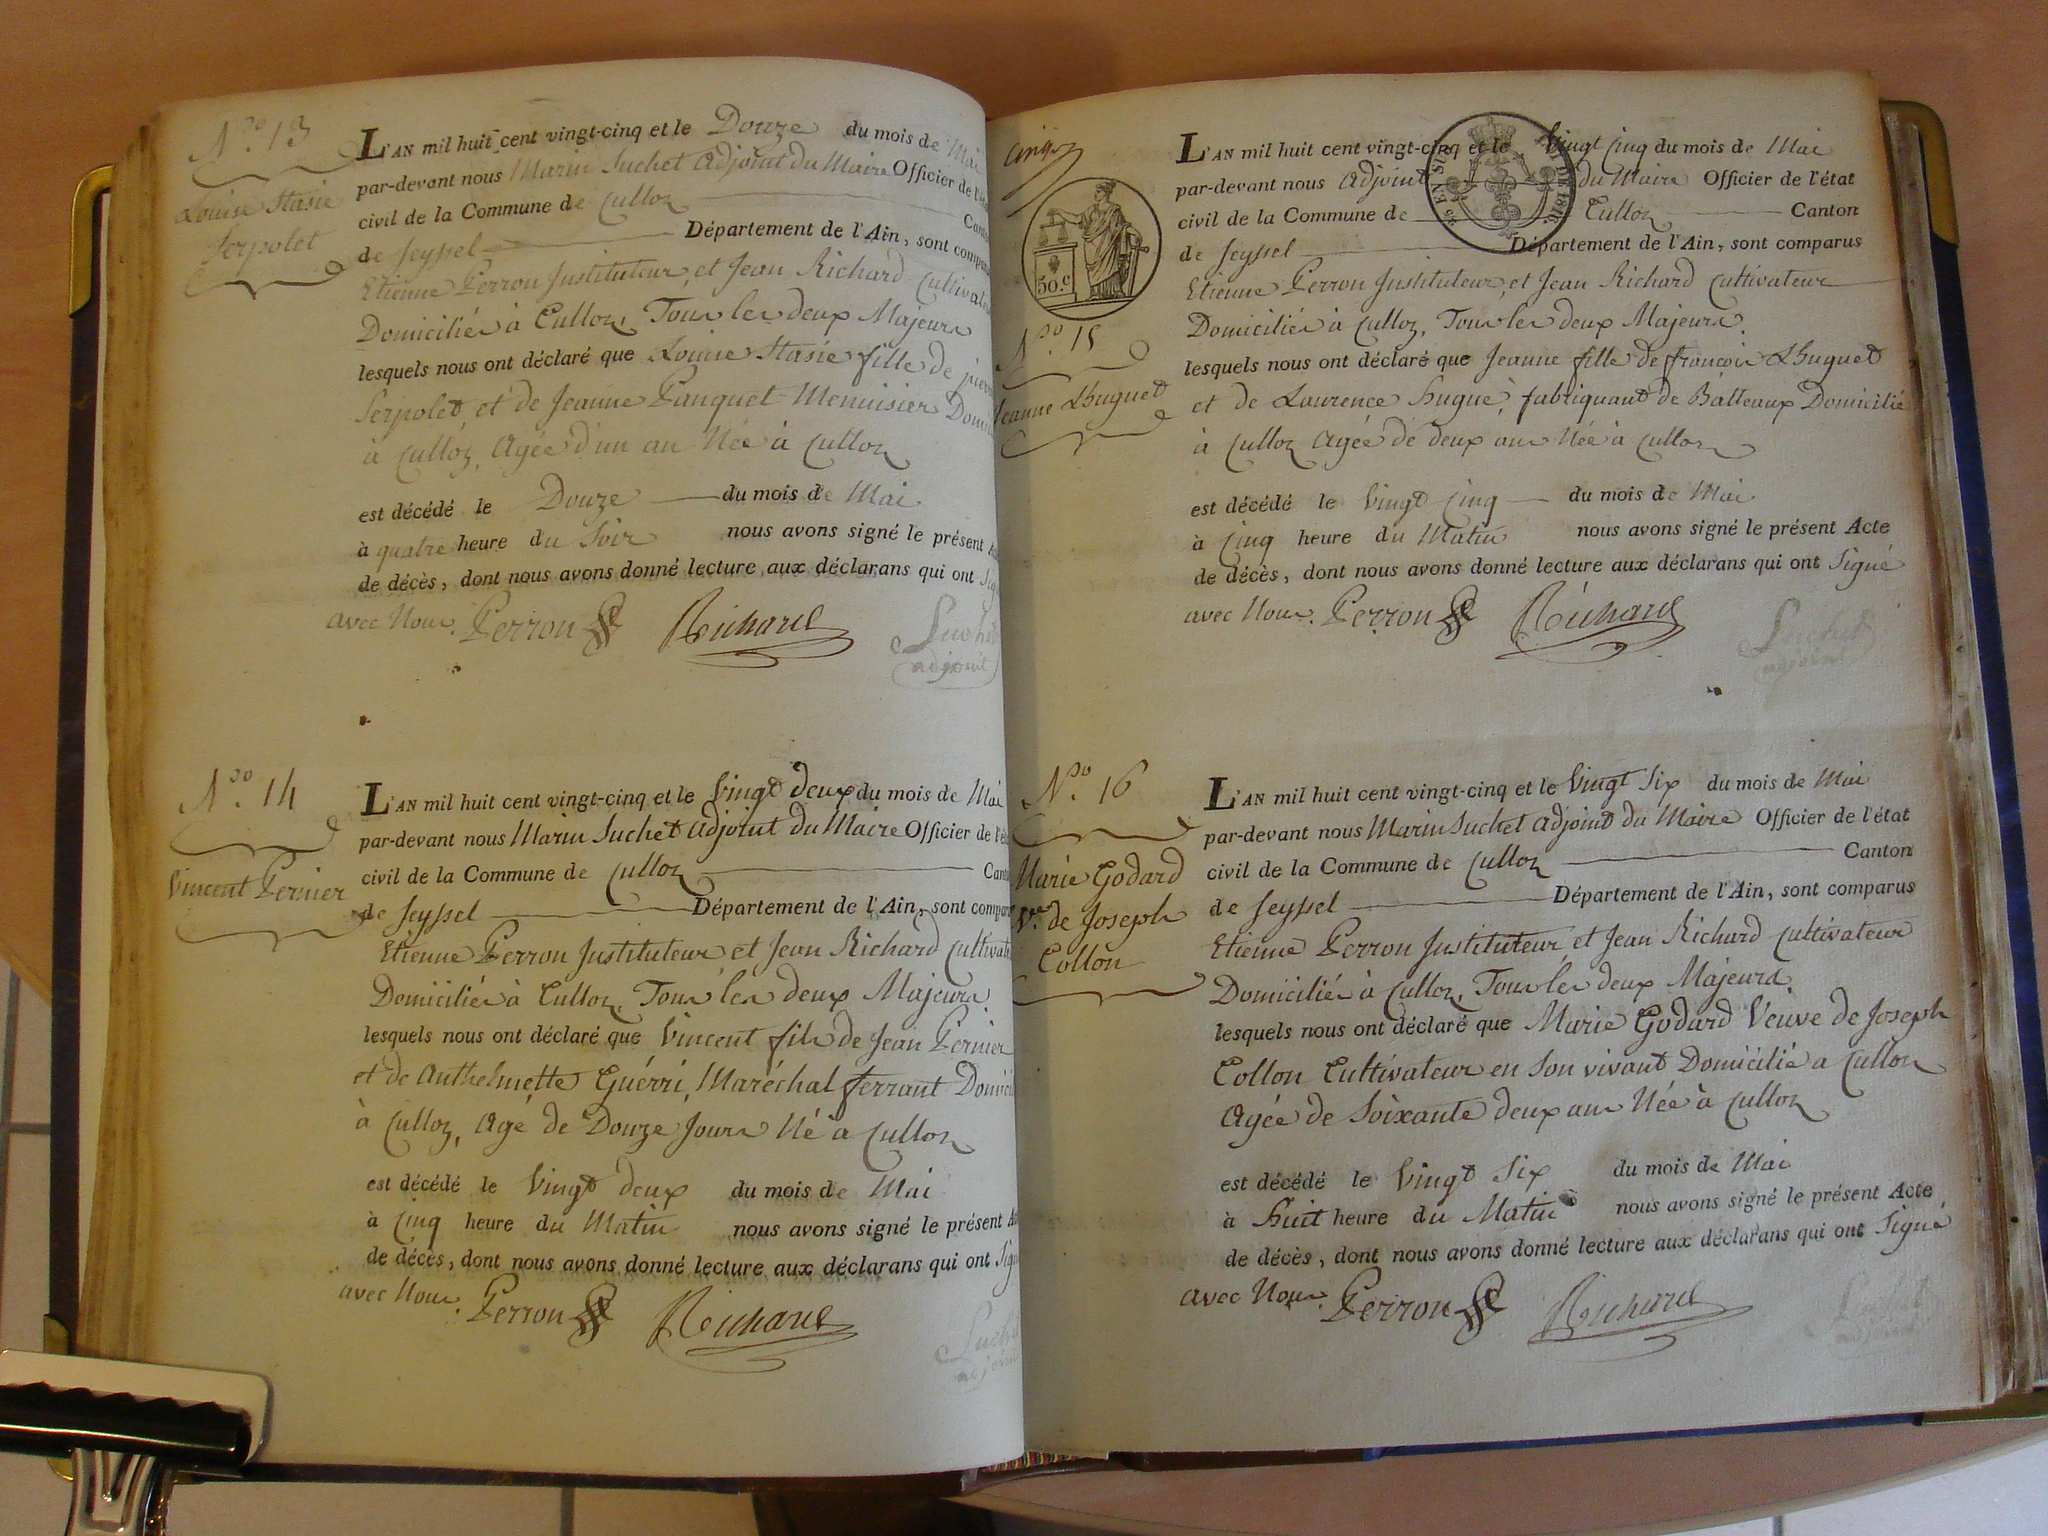 N.º 13
Louise Stasie
Serpolet
L'AN mil huit cent vingt-cinq et le Douze du mois de Mai
par-devant nous Marin Suchet Adjoint du Maire Officier de l'
civil de la Commune de Culloz
de Seyssel Département de l'Ain, sont compar
Etienne Perron Instituteur, et Jean Richard Cultivat
Domiciliés à Culloz, Tous les deux Majeurs
lesquels nous ont déclaré que Louise Stasie fille de pierr
Serpolet et de Jeanne Panquet Menuisier Domi
à Culloz, Agée d'un an Née à Culloz
est décédé le Douze du mois de Mai
à quatre heure du Soir nous avons signé le présent
de décès, dont nous avons donné lecture aux déclarans qui ont Sig
avec Nous. Perron Richard Suchet
adjoint
N.º 14
Vincent Pernier
L'AN mil huit cent vingt-cinq et le Vingt deux du mois de Mai
par-devant nous Marin Suchet Adjoint du Maire Officier de l'ét
civil de la Commune de Culloz Cant
de Seyssel Département de l'Ain, sont compar
Etienne Perron Instituteur et Jean Richard Cultivat
Domiciliés à Culloz, Tous les deux Majeurs
lesquels nous ont déclaré que Vincent fils de Jean Pernier
et de Anthelmette Guérri, Maréchal ferrant Domici
à Culloz, Agé de Douze Jours Né à Culloz
est décédé le Vingt deux du mois de Mai
à Cinq heure du Matin nous avons signé le présent A
de décès, dont nous avons donné lecture aux déclarans qui ont Sig
avec Nous. Perron Richard Suchet
adjoint
50.c
N.º 15
Jeanne Lhuguet
L'AN mil huit cent vingt-cinq et le Vingt Cinq du mois de Mai
par-devant nous Adjoint du Maire Officier de l'état
civil de la Commune de Culloz Canton
de Seyssel Département de l'Ain, sont comparus
Etienne Perron Instituteur, et Jean Richard Cultivateur
Domiciliés à Culloz, Tous les deux Majeurs.
lesquels nous ont déclaré que Jeanne fille de françois Lhuguet
et de Laurence Hugué, fabriquant de Batteaux Domicilié
à Culloz Agée de deux ans Née à Culloz
est décédé le Vingt Cinq du mois de Mai
à Cinq heure du Matin nous avons signé le présent Acte
de décès, dont nous avons donné lecture aux déclarans qui ont Signé
avec Nous. Perron Richard Suchet
adjoint
N.º 16
Marie Godard
V.ve de Joseph
Collon
L'AN mil huit cent vingt-cinq et le Vingt Six du mois de Mai
par-devant nous Marin Suchet Adjoint du Maire Officier de l'état
civil de la Commune de Culloz Canton
de Seyssel Département de l'Ain, sont comparus
Etienne Perron Instituteur et Jean Richard Cultivateur
Domiciliés à Culloz, Tous les deux Majeurs.
lesquels nous ont déclaré que Marie Godard Veuve de Joseph
Collon Cultivateur en Son vivant Domicilié a Culloz
Agée de Soixante deux ans Née à Culloz
est décédé le Vingt Six du mois de Mai
à Huit heure du Matin nous avons signé le présent Acte
de décès, dont nous avons donné lecture aux déclarans qui ont Signé
avec Nous. Perron Richard